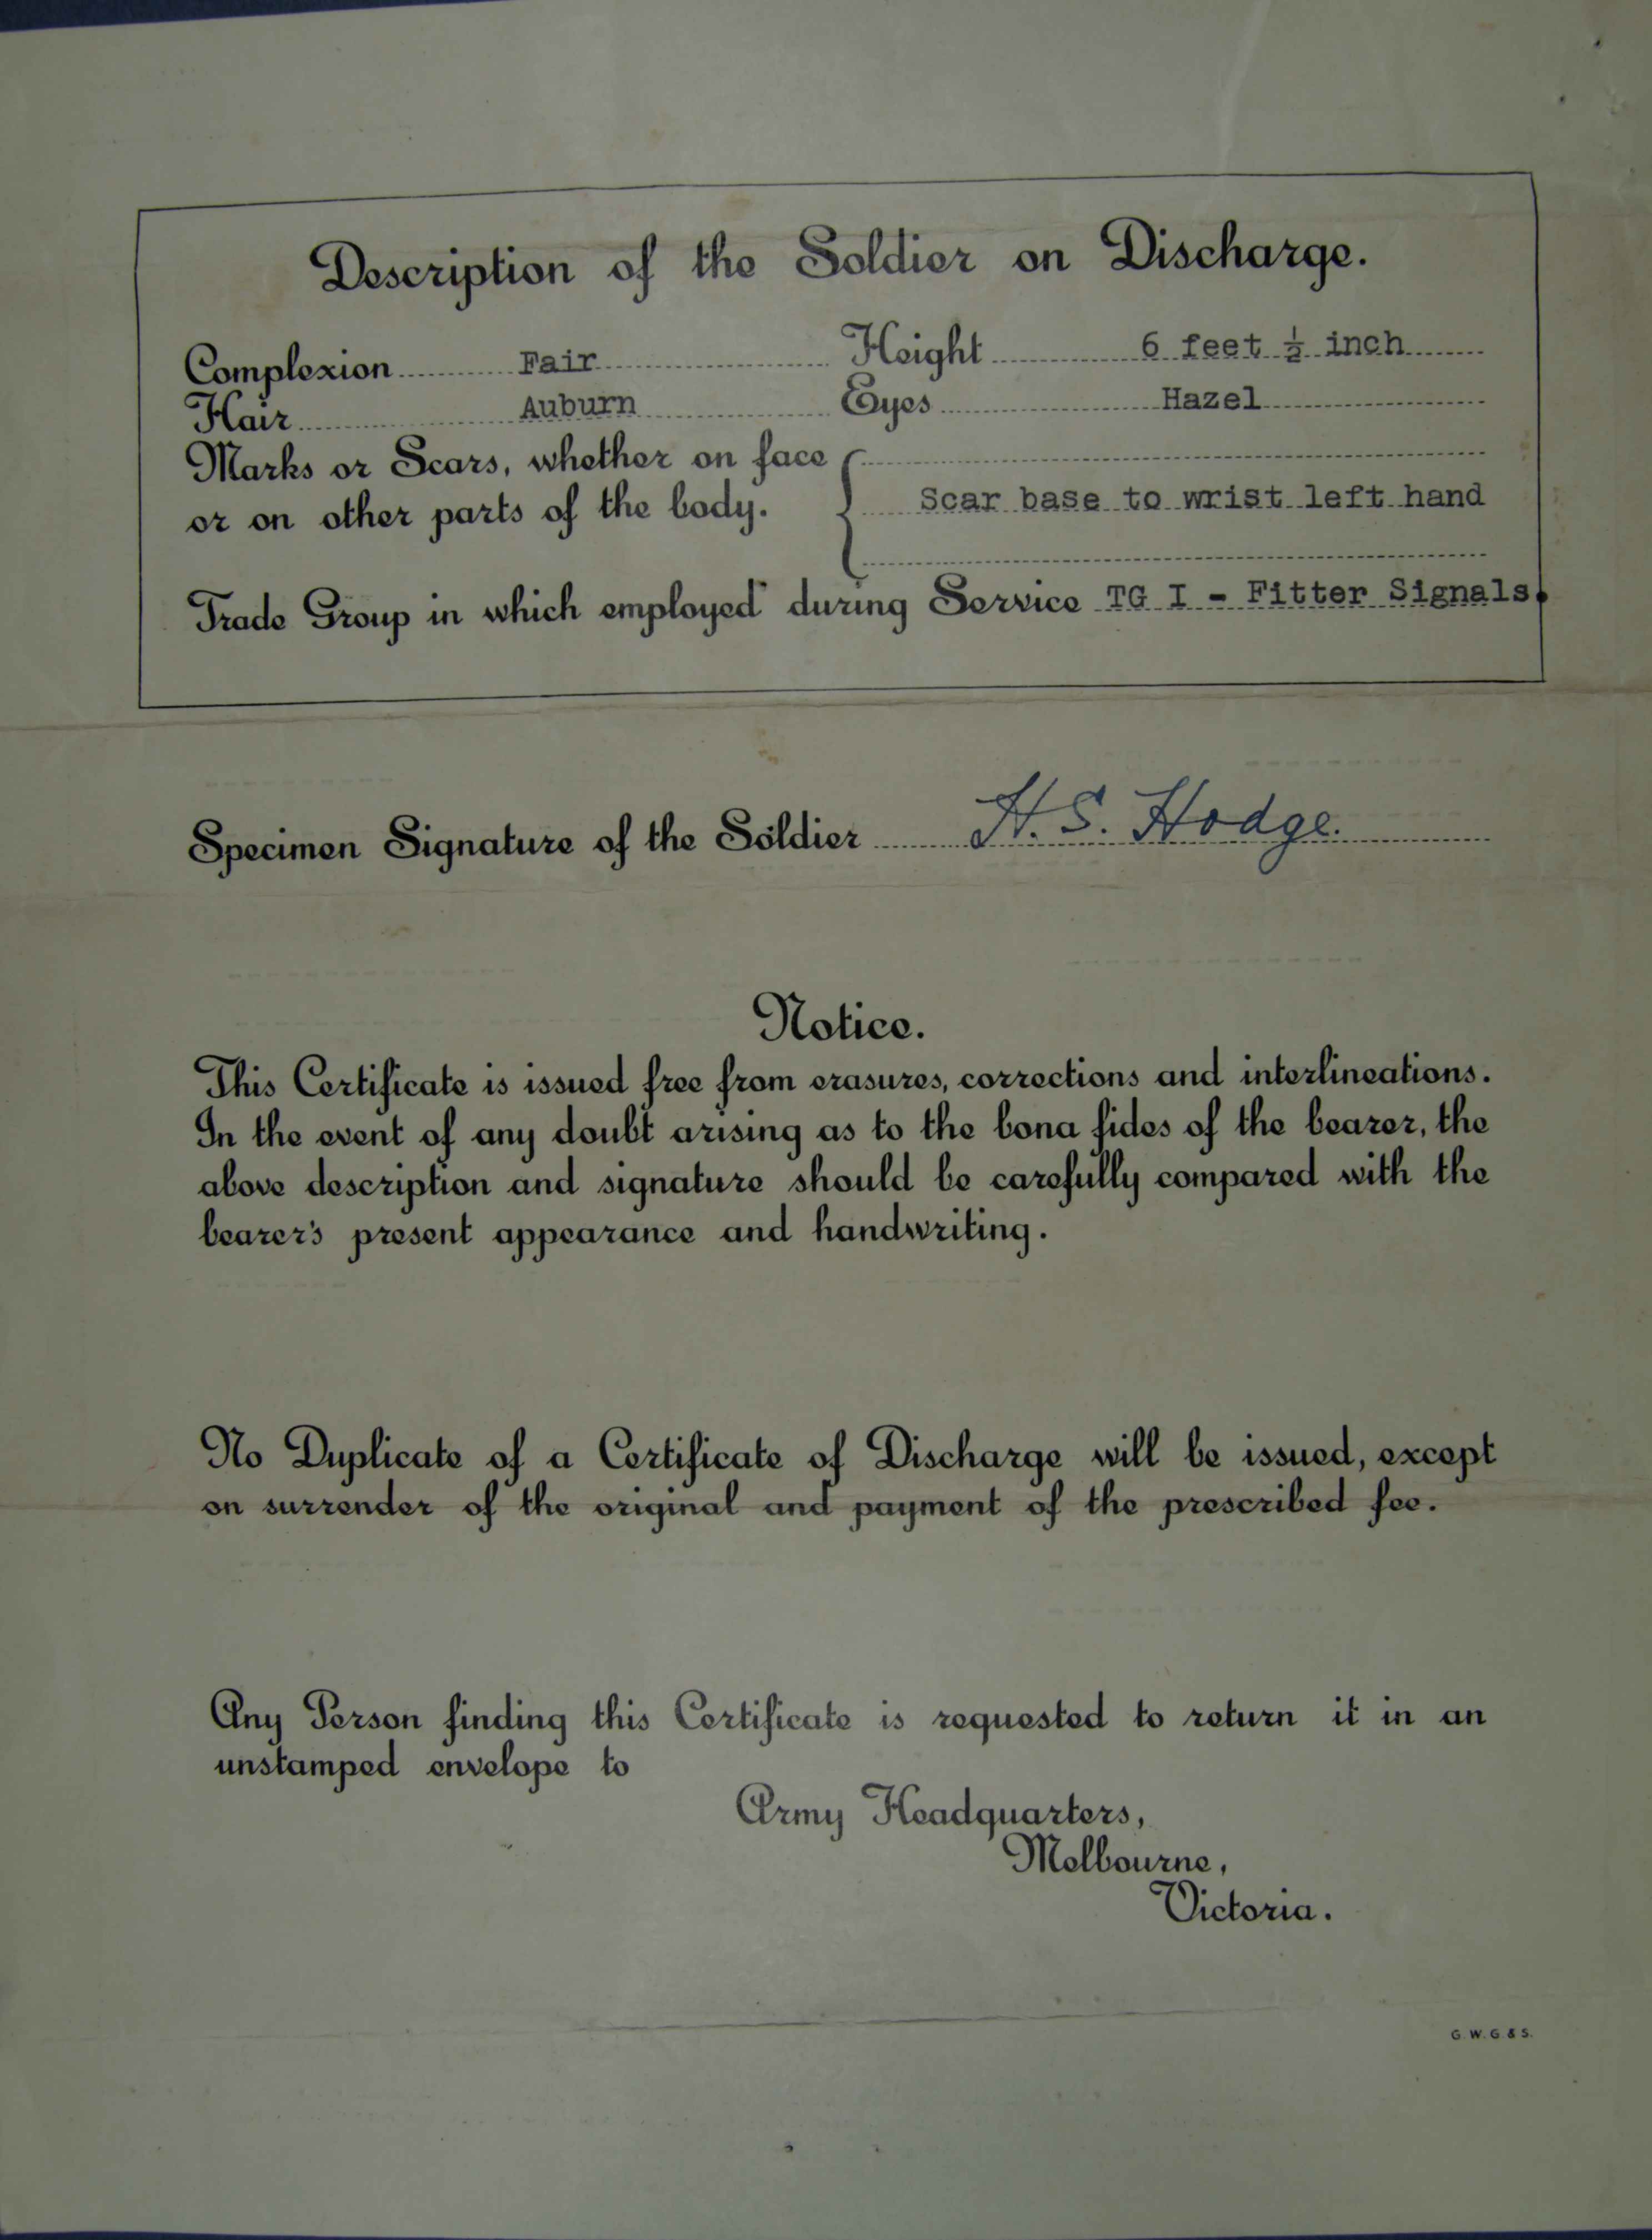 Description of the Soldier on Discharge.
Complexion Fair Height 6 feet ½ inch
Hair Auburn Eyes Hazel
Marks or Scars, whether on face
or on other parts of the body. Scar base to wrist left hand
Trade Group in which employed during Service TG I - Fitter Signals.
Specimen Signature of the Soldier H. S. Hodge.
Notice.
This Certificate is issued free from erasures, corrections and interlineations.
In the event of any doubt arising as to the bona fides of the bearer, the
above description and signature should be carefully compared with the
bearer's present appearance and handwriting.
No Duplicate of a Certificate of Discharge will be issued, except
on surrender of the original and payment of the prescribed fee.
Any Person finding this Certificate is requested to return it in an
unstamped envelope to
Army Headquarters,
Melbourne,
Victoria.
G. W. G & S.